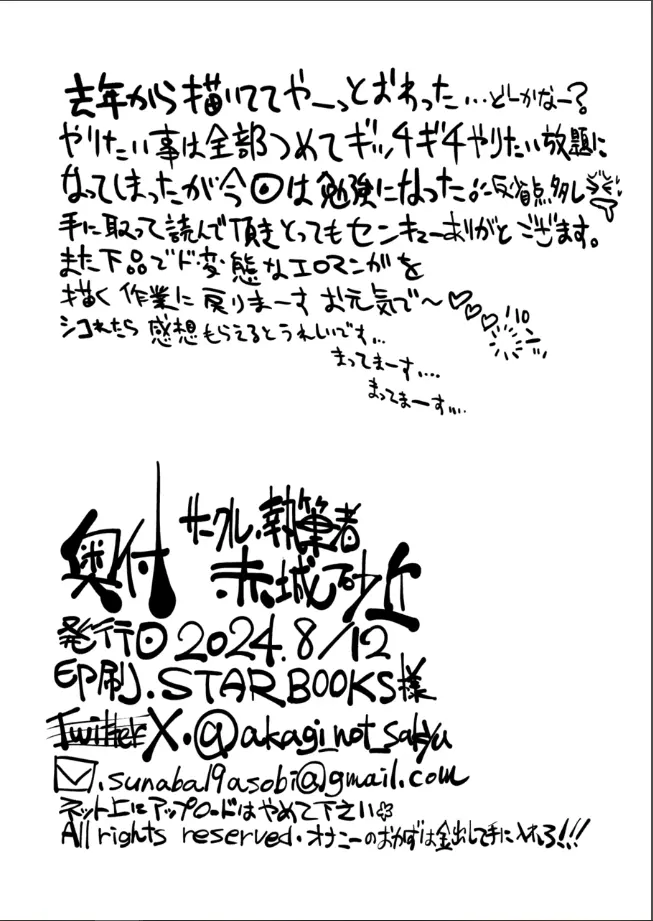 去年から描いててやーっとおわった…どしかなー?
やりたい事は全部つめてギッチギチやりたい放題に
なってしまったが今回は勉強になった。反省点多し
手に取って読んで頂きとってもセンキューありがとございます。
また下品でド変態なエロマンガを
描く作業に戻りまーすお元気で〜♡♡♡
シコれたら感想もらえるとうれしいです…
まってまーす….
まってまーす….
奥付
サークル.執筆者
赤城砂丘
発行日2024.8/12
印刷.STARBOOKS様
Twitter X.@akagi_not_sakyu
.sunaba19asobi@gmail.com
ネット上にアップロードはやめて下さい
All rights reserved.オナニーのおかずは金出して手に入れろ!!!